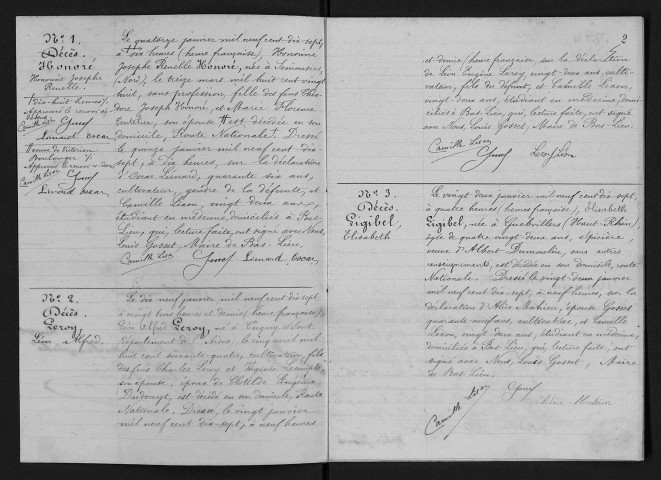 Nº 1.
Décès.
Honoré
Honorine Josephe
Renelle.
Le quatorze janvier mil neuf cent dix sept,
à dix heures (heure française) Honorine
Josephe Renelle Honoré, née à
(Nord), le treize mars mil huit cent vingt
huit, sans profession, fille des feus
Josephe Honoré, et Marie Florence
son épouse est décédée en son
domicile, Route Nationale. Dressé
le quinze janvier mil neuf cent dix
sept, à dix heures, sur la déclaration
d'Oscar Lénard, quarante six ans,
cultivateur, gendre de la défunte, et
Camille Lison, vingt deux ans,
étudiant en médecine, domiciliés à Bas-
Lieu, qui, lecture faite, ont signé avec Nous,
Louis Gosset, Maire de Bas-Lieu.
Camille Gosset Lenard Oscar
dix-huit heures
Lenard Oscar
Boulanger
Lenard Oscar
Nº 2.
Décès.
Leroy,
Léon Alfred.
Le dix neuf janvier mil neuf cent dix sept,
à vingt trois heures et demie (heure française)
Léon Alfred Leroy, né à
département de l'Aisne, le cinq avril mil
huit cent soixante quatre, cultivateur, fils
des feus Charles Leroy et
son épouse, époux de Clotilde Eugénie
est décédé en son domicile, Route
Nationale. Dressé, le vingt janvier
mil neuf cent dix-sept, à neuf heures
2
et demie, heure française, sur la déclaration
de Léon Eugène Leroy, vingt deux ans, culti-
vateur, fils du défunt, et Camille Lison,
vingt deux ans, étudiant en médecine, domi-
ciliés à Bas-Lieu, qui, lecture faite, ont signé
avec Nous, Louis Gosset, Maire de Bas-Lieu.
Camille Gosset Leroy Léon
Nº 3.
Décès.
Gigibel,
Elisabeth
Le vingt deux janvier mil neuf cent dix sept,
à quatre heures (heures françaises), Elisabeth
Gigibel, née à Guebvillers (Haut-Rhin),
âgée de quatre vingt deux ans, épicière,
veuve d'Albert Dumoulin, sans autres
renseignements, est décédée en son domicile, route
Nationale. Dressé le vingt-deux janvier
mil neuf cent dix-sept, à neuf heures, sur la
déclaration d'Alice Mahieu, épouse Gosset
quarante-neuf ans, cultivatrice, et Camille
Lison, vingt deux ans, étudiant en médecine,
domiciliés à Bas-Lieu, qui, lecture faite, ont
signé avec Nous, Louis Gosset, Maire
de Bas-Lieu.
Camille Gosset
Alice Mahieu